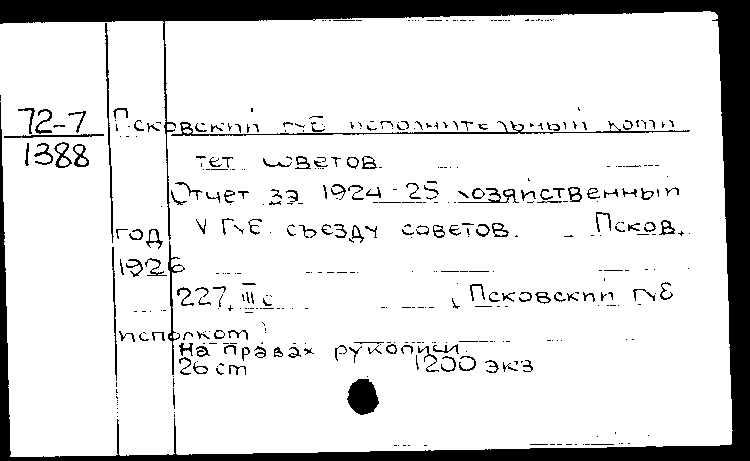 72-7 Псковский губ исполнительный коми
1388 тет советов
Отчет за 1924-25 хозяйственный
год V губ съезду советов. - Псков,
1926
227, III с (Псковский губ
исполком)
На правах рукописи
26 см 1200 экз